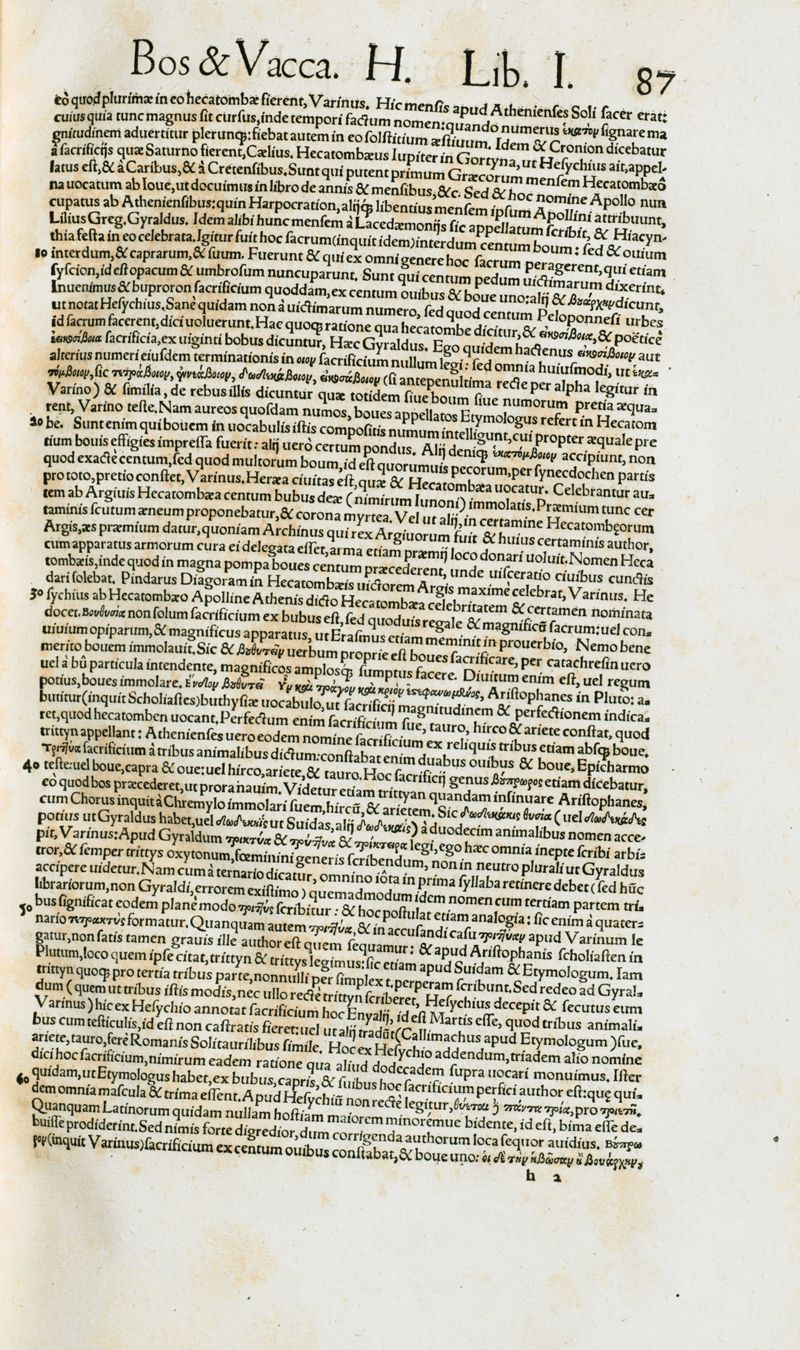 Bos & Vacca. H. Lib. I. 87
eò quod plurimæ in eo hecatombæ fierent, Varinus. Hic menſis apud Athenienſes Soli ſacer erat:
cuius quia tunc magnus ſit curſus, inde tempori factum nomen: quando numerus ἑκατὸν ſignare ma
gnitudinem aduertitur plerunqȝ: fiebat autem in eo ſolſtitium æſtiuum. Idem & Cronion dicebatur
à ſacrificijs quæ Saturno fierent, Cælius. Hecatombæus Iupiter in Gortyna, ut Heſychius ait, appel-
latus eſt, & à Caribus, & à Cretenſibus. Sunt qui putent primum Græcorum menſem Hecatombæō
na uocatum ab Ioue, ut docuimus in libro de annis & menſibus, &c. Sed & hoc nomine Apollo nun
cupatus ab Athenienſibus: quin Harpocration, alijqȝ libentius menſem ipſum Apollini attribuunt,
Lilius Greg. Gyraldus. Idem alibi hunc menſem à Lacedæmonijs ſic appellatum ſcribit, & Hiacyn-
thia feſta in eo celebrata. Igitur fuit hoc ſacrum (inquit idem) interdum centum boum: ſed & ouium
10 interdum, & caprarum, & ſuum. Fuerunt & qui ex omni genere hoc ſacrum peragerent, qui etiam
ſyſcion, id eſt opacum & umbroſum nuncuparunt. Sunt qui centum pedum uictimarum dixerint.
Inuenimus & buproron ſacrificium quoddam, ex centum ouibus & boue uno: alij & βουάρχην dicunt,
ut notat Heſychius. Sanè quidam non à uictimarum numero, ſed quod centum Peloponneſi urbes
id ſacrum facerent, dici uoluerunt. Hac quoqȝ ratione qua hecatombe dicitur, & εἰκοσάβοια, & poëticè
ἐεικοσάβοια ſacrificia, ex uiginti bobus dicuntur, Hæc Gyraldus. Ego quidem hactenus εἰκοσάβοιον aut
alterius numeri eiuſdem terminationis in οιον ſacrificium nullum legi: ſed omnia huiuſmodi, ut ἑκα-
τόμβοιον, ſic τετράβοιον, ἐννεάβοιον, δωδεκάβοιον, εἰκοσάβοιον (ſi antepenultima recte per alpha legitur in
Varino) & ſimilia, de rebus illis dicuntur quæ totidem ſiue boum ſiue numorum pretia æqua-
rent, Varino teſte. Nam aureos quoſdam numos, boues appellatos Etymologus refert in Hecatom
20 be. Sunt enim qui bouem in uocabulis iſtis compoſitis numum intelligunt, cui propter æquale pre
tium bouis effigies impreſſa fuerit: alij uerò certum pondus. Alij deniqȝ ἑκατόμβοιον accipiunt, non
quod exactè centum, ſed quod multorum boum, id eſt quorumuis pecorum, per ſynecdochen partis
pro toto, pretio conſtet, Varinus. Heræa ciuitas eſt, quæ & Hecatombæa uocatur. Celebrantur au-
tem ab Argiuis Hecatombæa centum bubus deæ (nimirum Iunoni) immolatis. Præmium tunc cer
taminis ſcutum æneum proponebatur, & corona myrtea. Vel ut alij, in certamine Hecatombęorum
Argis, æs præmium datur, quoniam Archinus qui rex Argiuorum fuit & huius certaminis author,
cum apparatus armorum cura ei delegata eſſet, arma etiam præmij loco donari uoluit. Nomen Heca
tombæis, inde quod in magna pompa boues centum præcederent, unde uiſceratio ciuibus cunctis
dari ſolebat. Pindarus Diagoram in Hecatombæis uictorem Argis maximè celebrat, Varinus. He
30 ſychius ab Hecatombæo Apolline Athenis dicto Hecatombæa celebritatem & certamen nominata
docet. Βουθυσία non ſolum ſacrificium ex bubus eſt, ſed quoduis regale & magnificū ſacrum: uel con-
uiuium opiparum, & magnificus apparatus, ut Eraſmus etiam meminit in prouerbio, Nemo bene
merito bouem immolauit. Sic & βουθυτεῖν uerbum proprie eſt boues ſacrificare, per catachreſin uero
uel à bû particula intendente, magnificos amplosqȝ ſumptus facere. Diuitum enim eſt, uel regum
potius, boues immolare. ἔνδον βουθυτεῖ Ὗν καὶ τράγον καὶ κριὸν ἐστεφανωμένος, Ariſtophanes in Pluto: a-
butitur (inquit Scholiaſtes) buthyſiæ uocabulo, ut ſacrificij magnitudinem & perfectionem indica-
ret, quod hecatomben uocant. Perfectum enim ſacrificium ſue, tauro, hirco & ariete conſtat, quod
trittyn appellant: Athenienſes uero eodem nomine ſacrificium ex reliquis tribus etiam abſqȝ boue.
Τριττύα ſacrificium à tribus animalibus dictum: conſtabat enim duabus ouibus & boue, Epicharmo
40 teſte: uel boue, capra & oue: uel hirco, ariete, & tauro. Hoc ſacrificij genus βούπρωρος etiam dicebatur,
eò quod bos præcederet, ut prora nauim. Videtur etiam trittyan quandam inſinuare Ariſtophanes,
cum Chorus inquit à Chremylo immolari ſuem, hircū, & arietem. Sic δωδεκάκις θυσία (uel δωδεκάδες
potius ut Gyraldus habet, uel ut Suidas, alij) à duodecim animalibus nomen acce-
pit, Varinus: Apud Gyraldum τρικτύα & τρυττύα & legi, ego hæc omnia inepte ſcribi arbi-
tror, & ſemper trittys oxytonum, fœminini generis ſcribendum, non in neutro plurali ut Gyraldus
accipere uidetur. Nam cum à ternario dicatur, omnino iôta in prima ſyllaba retinere debet (ſed hūc
librariorum, non Gyraldi, errorem exiſtimo) quemadmodum idem nomen cum tertiam partem tri-
bus ſignificat eodem planè modo τριττὺς ſcribitur: & hoc poſtulat etiam analogia: ſic enim à quater-
50 nario τετρακτὺς formatur. Quanquam autem τριττύα, & in accuſandi caſu τριττύαν apud Varinum le
gatur, non ſatis tamen grauis ille author eſt quem ſequamur: & apud Ariſtophanis ſcholiaſten in
Plutum, loco quem ipſe citat, trittyn & trittys legimus: ſic etiam apud Suidam & Etymologum. Iam
trittyn quoqȝ pro tertia tribus parte, nonnulli per ſimplex t. perperam ſcribunt. Sed redeo ad Gyral-
dum (quem ut tribus iſtis modis, nec ullo recte trittyn ſcriberet, Heſychius decepit & ſecutus eum
Varinus) hic ex Heſychio annotat ſacrificium hoc Enyalij, id eſt Martis eſſe, quod tribus animali-
bus cum teſticulis, id eſt non caſtratis fieret: uel ut alij tradūt (Callimachus apud Etymologum) ſue,
ariete, tauro, ferè Romanis Solitaurilibus ſimile. Hoc ex Heſychio addendum, triadem alio nomine
dici hoc ſacrificium, nimirum eadem ratione qua aliud dodecadem ſupra uocari monuimus. Iſter
60 quidam, ut Etymologus habet, ex bubus, capris, & ſuibus hoc ſacrificium perfici author eſt: quę qui-
dem omnia maſcula & trima eſſent. Apud Heſychiū non recte legitur, θύνται πάντα τρία, pro τριετῆ.
Quanquam Latinorum quidam nullam hoſtiam maiorem minoremue bidente, id eſt, bima eſſe de-
buiſſe prodiderint. Sed nimis forte digredior, dum corrigenda authorum loca ſequor auidius. Βούπρω
ρον (inquit Varinus) ſacrificium ex centum ouibus conſtabat, & boue uno: οἱ δὲ τὴν ἡβῶσαν ἢ βουάρχην,
h 2